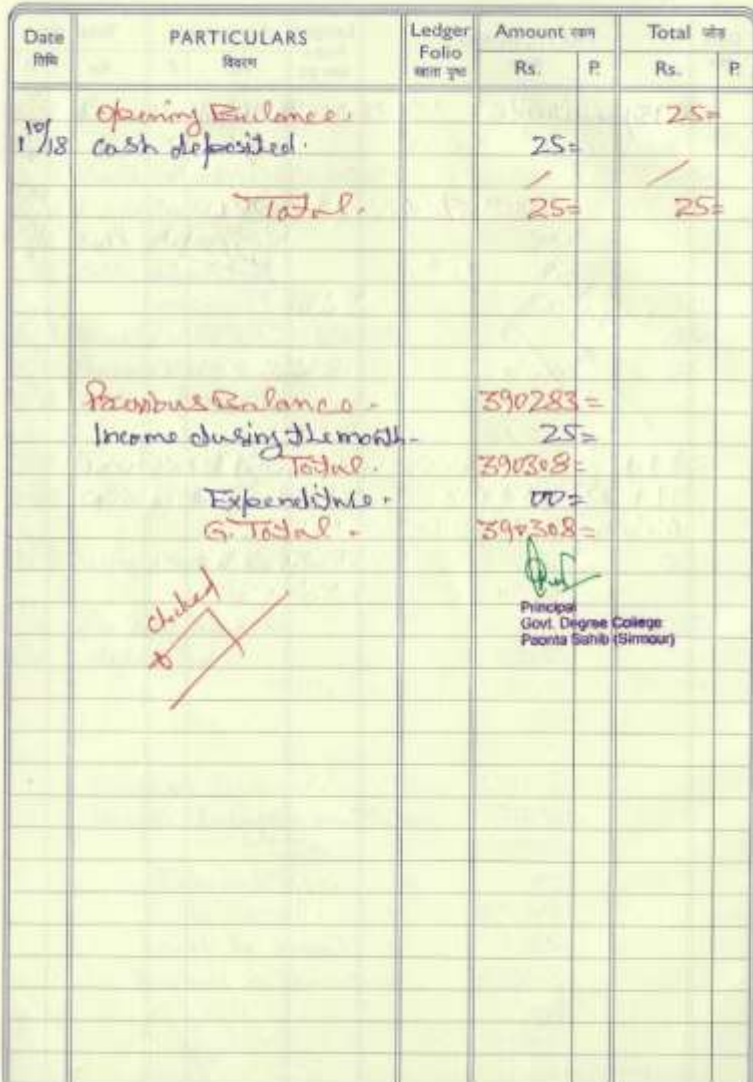 Date PARTICULARS Ledger Folio Amount रकम Total जोड़
तिथि विवरण खाता पृष्ठ Rs. P. Rs. P.
Opening Balance. 25=
1/10/18 Cash deposited. 25=
Total. 25= 25=
Previous Balance - 390283=
Income during the month - 25=
Total. 390308=
Expenditure. 00=
G. Total - 390308=
Checked
Principal
Govt. Degree College
Paonta Sahib (Sirmour)